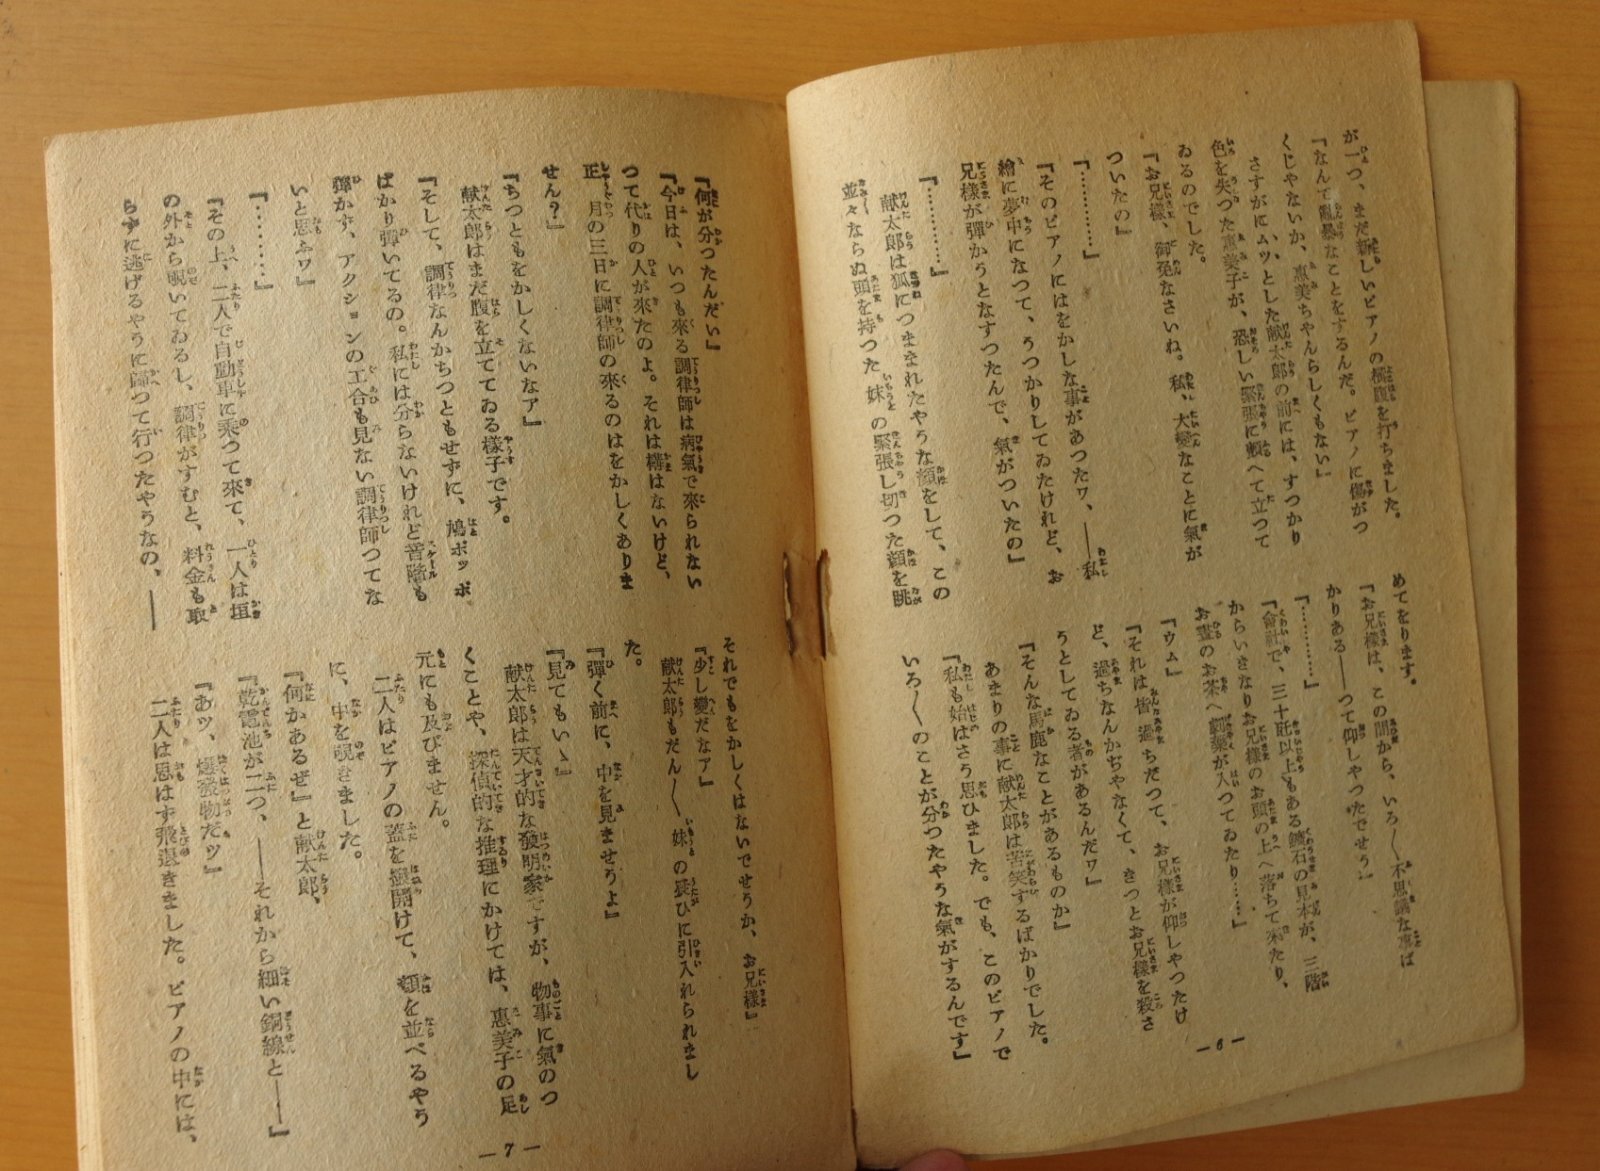 が一つ、まだ新しいピアノの横腹を打ちました。
『なんて亂暴なことをするんだ。ピアノに傷がつ
くじやないか、惠美ちやんらしくもない』
さすがにムツとした献太郎の前には、すつかり
色を失つた惠美子が、恐しい緊張に顫へて立つて
ゐるのでした。
『お兄樣、御免なさいね。私、大變なことに氣が
ついたの』
『…………』
『そのピアノにはをかしな事があつたワ、――私
繪に夢中になつて、うつかりしてゐたけれど、お
兄樣が彈かうとなすつたんで、氣がついたの』
『…………』
献太郎は狐につままれたやうな顔をして、この
並々ならぬ頭を持つた妹の緊張し切つた顔を眺
めてをります。
『お兄樣は、この間から、いろ〱不思議な事ば
かりある――つて仰しやつたでせう』
『…………』
『會社で、三十瓩以上もある鑛石の見本が、三階
からいきなりお兄樣のお頭の上へ落ちて來たり、
お晝のお茶へ劇藥が入つてゐたり……』
『ウム』
『それは皆過ちだつて、お兄樣が仰しやつたけ
ど、過ちなんかぢやなくて、きつとお兄樣を殺さ
うとしてゐる者があるんだワ』
『そんな馬鹿なことがあるものか』
あまりの事に献太郎は苦笑するばかりでした。
『私も始はさう思ひました。でも、このピアノで
いろ〱のことが分つたやうな氣がするんです』
―6―
『何が分つたんだい』
『今日は、いつも來る調律師は病氣で來られない
つて代りの人が來たのよ。それは構はないけど、
正月の三日に調律師の來るのはをかしくありま
せん？』
『ちつともをかしくないなア』
献太郎はまだ腹を立ててゐる樣子です。
『そして、調律なんかちつともせずに、鳩ポッポ
ばかり彈いてるの。私には分らないけれど音階も
彈かず、アクションの工合も見ない調律師つてな
いと思ふワ』
『…………』
『その上、二人で自動車に乘つて來て、一人は垣
の外から覗いてゐるし、調律がすむと、料金も取
らずに逃げるやうに歸つて行つたやうなの、――
それでもをかしくはないでせうか、お兄樣』
『少し變だなア』
献太郎もだん〱妹の疑ひに引入れられまし
た。
『彈く前に、中を見ませうよ』
『見てもいゝ』
献太郎は天才的な發明家ですが、物事に氣のつ
くことや、探偵的な推理にかけては、惠美子の足
元にも及びません。
二人はピアノの蓋を撥開けて、顔を並べるやう
に、中を覗きました。
『何かあるぜ』と献太郎、
『乾電池が二つ、――それから細い銅線と――』
『あッ、爆發物だッ』
二人は思はず飛退きました。ピアノの中には、
―7―